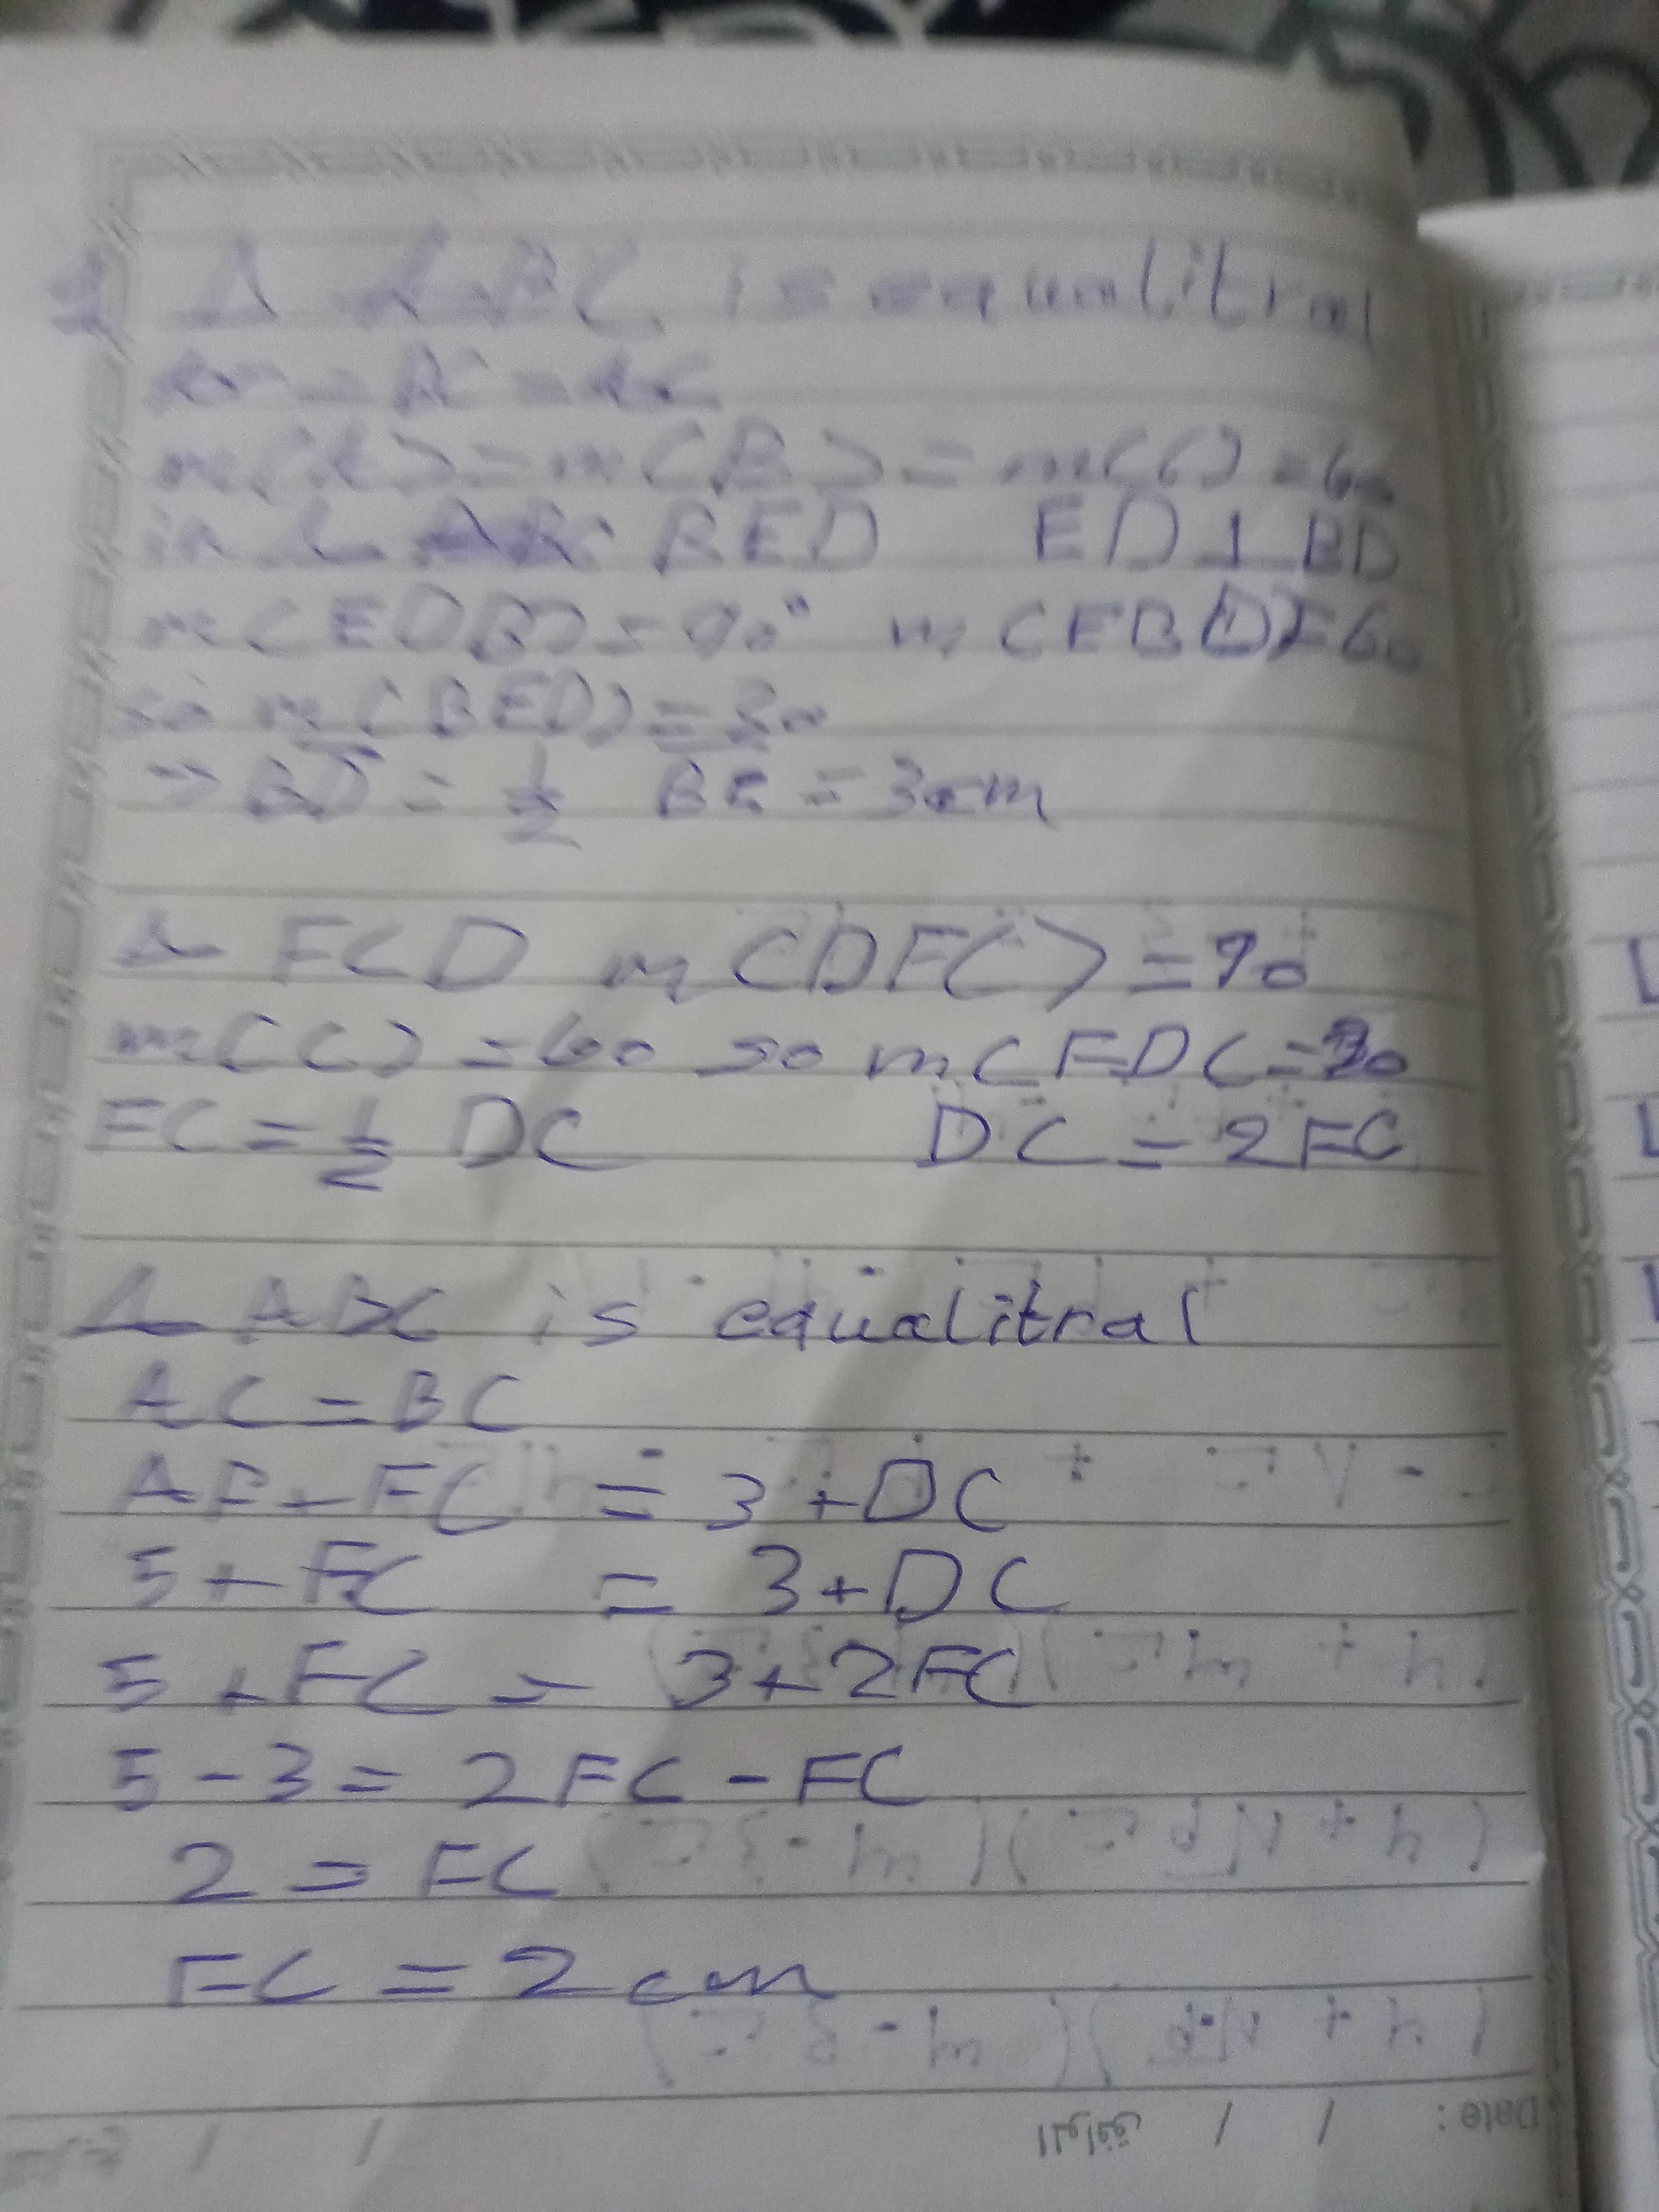 Δ ABC is equalitral
= BC = AC
m(A) = m(B) = m(C) = 60
in Δ BED ED ⊥ BD
m(EDB) = 90° m(EBD) = 60
so m(BED) = 30
⇒ BD = 1/2 BE = 3cm
Δ FCD m(DFC) = 90
m(C) = 60 so m(FDC = 30
FC = 1/2 DC DC = 2FC
Δ ABC is equalitral
AC = BC
AF + FC = 3 + DC
5 + FC = 3 + DC
5 + FC = 3 + 2FC
5 - 3 = 2FC - FC
2 = FC
FC = 2 cm
Date: / / الموافق / /